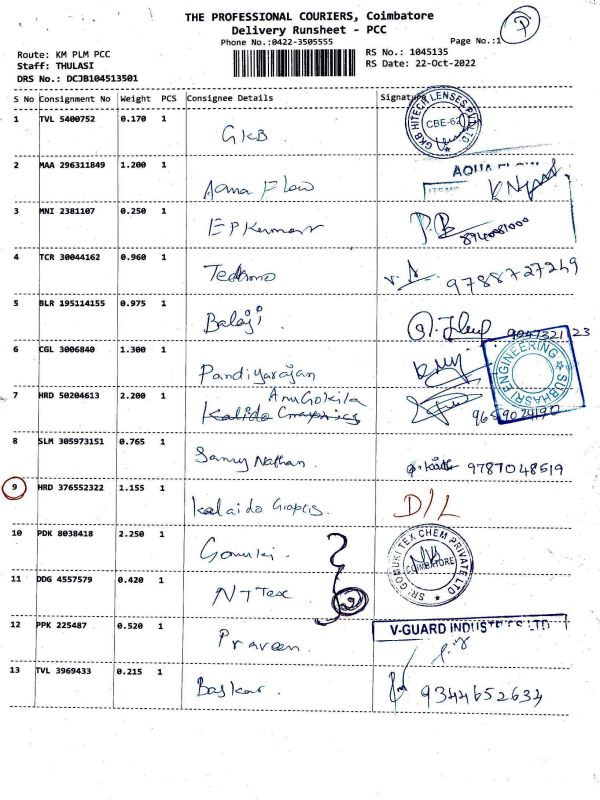 THE PROFESSIONAL COURIERS, Coimbatore
P
Delivery Runsheet - PCC
Phone No.:0422-3505555
Page No.:1
Route: KM PLM PCC
RS No.: 1045135
Staff: THULASI
RS Date: 22-Oct-2022
DRS No.: DCJB104513501
S No Consignment No Weight PCS Consignee Details Signature
1 TVL 5400752 0.170 1 GKB GKB HITECH LENSES PVT LTD CBE-62
2 MAA 296311849 1.200 1 Aqua Flow AQUA
3 MNI 2381107 0.250 1 EP 8940081000
4 TCR 30044162 0.960 1 9788727249
5 BLR 195114155 0.975 1 Balaji
6 CGL 3006840 1.300 1 Pandiyarajan SUBHASRI ENGINEERING
7 HRD 50204613 2.200 1 AnuGokila
Kalido Graphics
8 SLM 305973151 0.765 1 Samy Nathan. 9787048519
9 HRD 376552322 1.155 1 Kalaido D/L
10 PDK 8038418 2.250 1 Gomuki. SRI GOMUKI TEX CHEM PRIVATE LTD COIMBATORE
11 DDG 4557579 0.420 1 NT Tex
12 PPK 225487 0.520 1 Praveen. V-GUARD INDUSTRIES LTD
13 TVL 3969433 0.215 1 Baskar. 9344652634